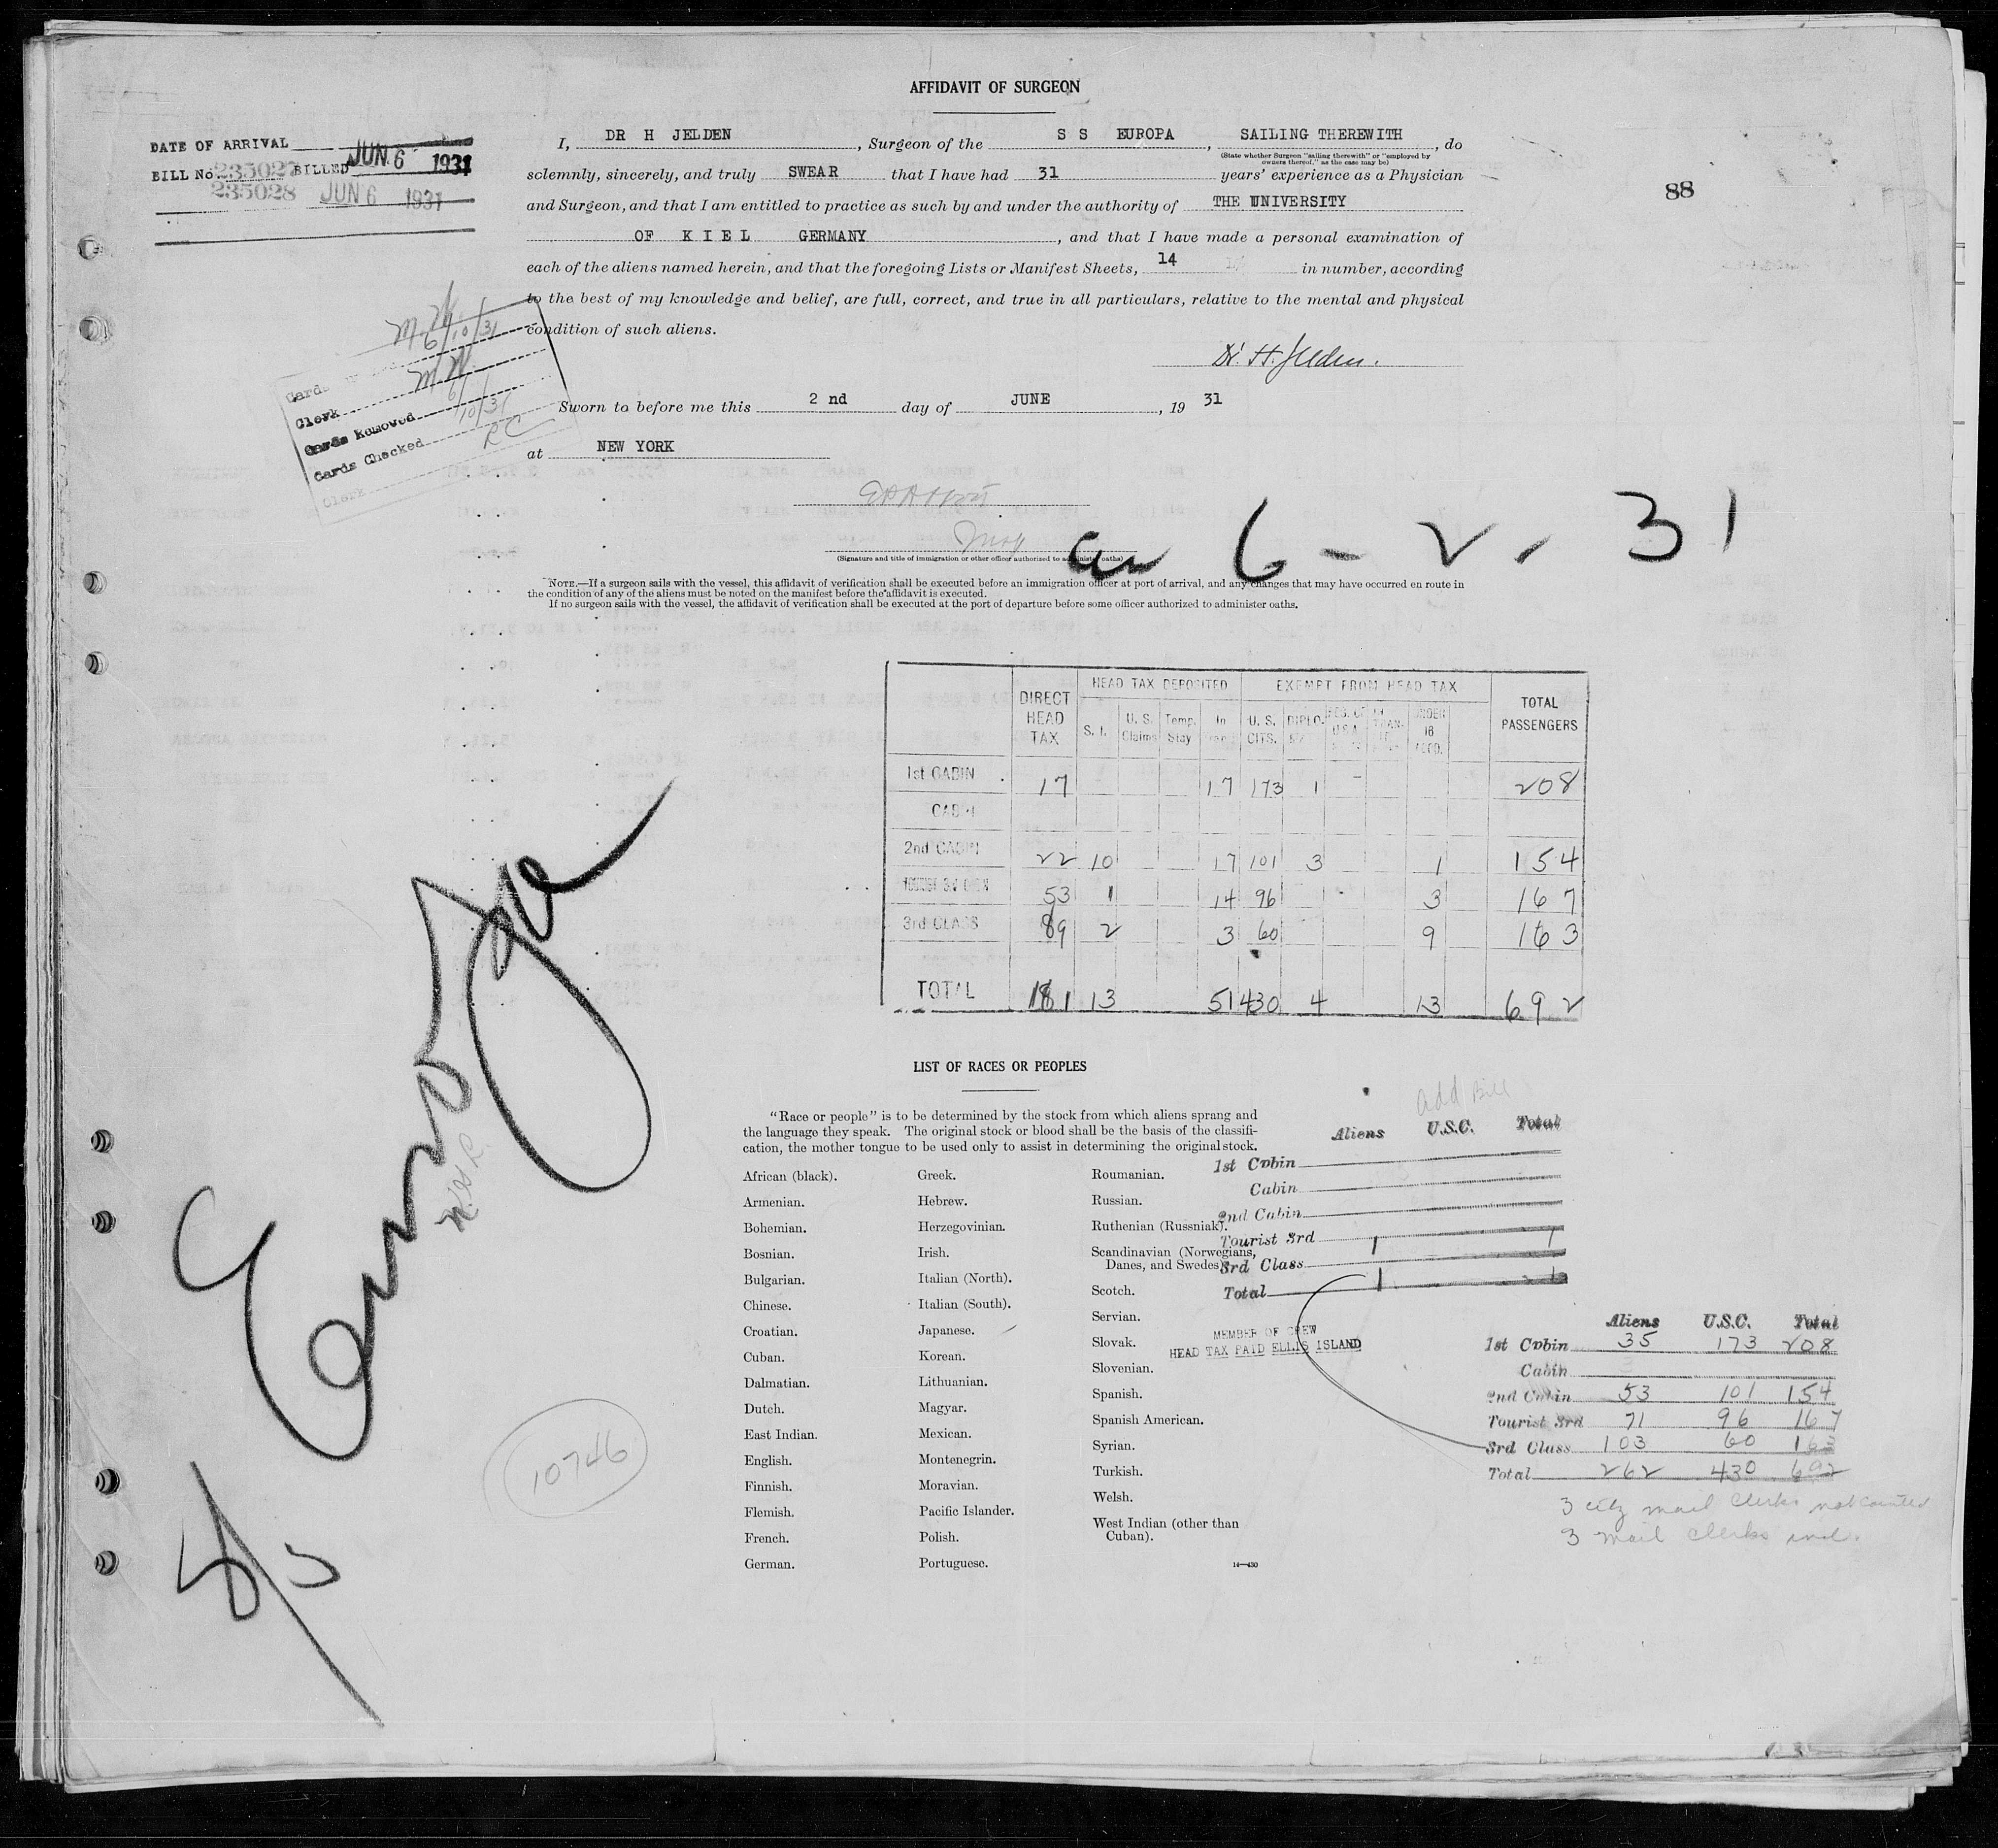 AFFIDAVIT OF SURGEON
DATE OF ARRIVAL
BILL No. 235027 BILLED JUN 6 1931
235028 JUN 6 1931
88
I, DR H JELDEN, Surgeon of the S S EUROPA, SAILING THEREWITH, do
(State whether Surgeon "sailing therewith" or "employed by
owners thereof," as the case may be)
solemnly, sincerely, and truly SWEAR that I have had 31 years' experience as a Physician
and Surgeon, and that I am entitled to practice as such by and under the authority of THE UNIVERSITY
OF K I E L GERMANY, and that I have made a personal examination of
each of the aliens named herein, and that the foregoing Lists or Manifest Sheets, 14 in number, according
to the best of my knowledge and belief, are full, correct, and true in all particulars, relative to the mental and physical
condition of such aliens.
Dr. H. Jelden.
Cards
6/10/31
Clerk
Cards Removed 6/10/31
Cards Checked RC
Clerk
Sworn to before me this 2 nd day of JUNE, 19 31
at NEW YORK
Insp
(Signature and title of immigration or other officer authorized to administer oaths)
6-2-31
NOTE.—If a surgeon sails with the vessel, this affidavit of verification shall be executed before an immigration officer at port of arrival, and any changes that may have occurred en route in
the condition of any of the aliens must be noted on the manifest before the affidavit is executed.
If no surgeon sails with the vessel, the affidavit of verification shall be executed at the port of departure before some officer authorized to administer oaths.
DIRECT HEAD TAX HEAD TAX DEPOSITED EXEMPT FROM HEAD TAX TOTAL PASSENGERS
S. I. U. S. Claims Temp. Stay In Transit U. S. CITS. DIPLO. UNDER 16 ACCO.
1st CABIN 17 17 173 1 - 208
CABIN
2nd CABIN 22 10 17 101 3 1 154
TOURIST 3rd 53 1 14 96 3 167
3rd CLASS 89 2 3 60 9 163
TOTAL 181 13 51 430 4 13 692
Europa
S/S
10746
LIST OF RACES OR PEOPLES
"Race or people" is to be determined by the stock from which aliens sprang and
the language they speak. The original stock or blood shall be the basis of the classifi-
cation, the mother tongue to be used only to assist in determining the original stock.
African (black).
Armenian.
Bohemian.
Bosnian.
Bulgarian.
Chinese.
Croatian.
Cuban.
Dalmatian.
Dutch.
East Indian.
English.
Finnish.
Flemish.
French.
German.
Greek.
Hebrew.
Herzegovinian.
Irish.
Italian (North).
Italian (South).
Japanese.
Korean.
Lithuanian.
Magyar.
Mexican.
Montenegrin.
Moravian.
Pacific Islander.
Polish.
Portuguese.
Roumanian.
Russian.
Ruthenian (Russniak).
Scandinavian (Norwegians,
Danes, and Swedes).
Scotch.
Servian.
Slovak.
Slovenian.
Spanish.
Spanish American.
Syrian.
Turkish.
Welsh.
West Indian (other than
Cuban).
14—430
Add Bill
Aliens U.S.C. Total
1st Cabin
Cabin
2nd Cabin
Tourist 3rd 1 1
3rd Class
Total 1 1
MEMBER OF CREW
HEAD TAX PAID ELLIS ISLAND
Aliens U.S.C. Total
1st Cabin 35 173 208
Cabin
2nd Cabin 53 101 154
Tourist 3rd 71 96 167
3rd Class 103 60 163
Total 262 430 692
3 city mail clerks not counted
3 mail clerks incl.